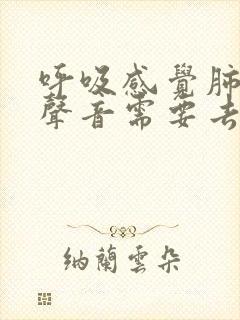 呼吸感覺肺
聲音需要去
納蘭雲朵